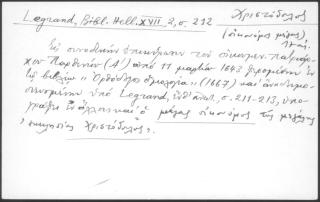 Legrand, Bibl. Hell. XVII, 2, σ. 212
Χριστόδουλος
(οἰκονόμος μέγας)
Ἐν συνοδικῇ ἐπικυρώσει τοῦ οἰκουμεν. πατριάρ-
χου Παρθενίου (Α') ἀπὸ 11 μαρτίου 1643 φερομένῃ ἐν
τῷ βιβλίῳ "Ὀρθόδοξος ὁμολογία" (1667) καὶ ἀναδημο-
σιευομένῃ ὑπὸ Legrand, ἔνθ' ἀνωτ., σ. 211-213, ὑπο-
γράφει ὁ μέγας οἰκονόμος τῆς μεγάλης
ἐκκλησίας Χριστόδουλος.